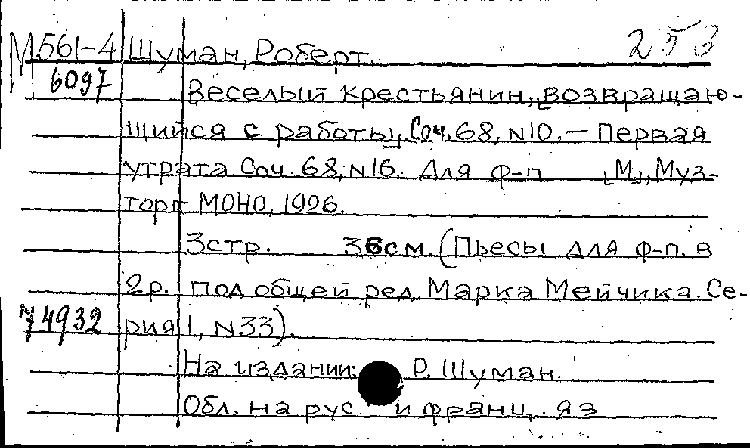 М561-4 Шуман, Роберт. 253
6097 Веселый крестьянин, возвращаю-
щийся с работы, Соч. 68, N10. – Первая
утрата Соч. 68, N16. Для ф-п М., Муз-
торг МОНО, 1926.
3стр. 36см. (Пьесы для ф-п. в
2р. под общей ред. Марка Мейчика. Се-
74932 рия 1, N33).
На издании: Р. Шуман
Обл. на рус и франц. яз